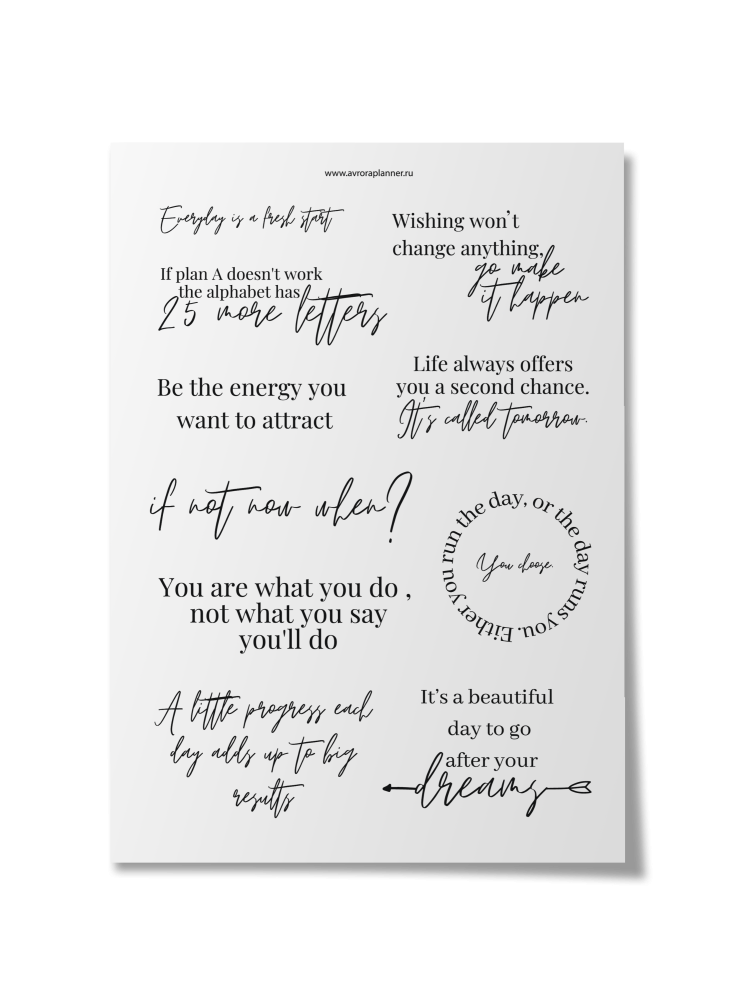 www.avroraplanner.ru
Everyday is a fresh start
If plan A doesn't work
the alphabet has
25 more letters
Be the energy you
want to attract
if not now when?
You are what you do ,
not what you say
you'll do
A little progress each
day adds up to big
results
Wishing won't
change anything,
go make
it happen
Life always offers
you a second chance.
It's called tomorrow.
Either you run the day, or the day runs you.
You choose.
It's a beautiful
day to go
after your
dreams